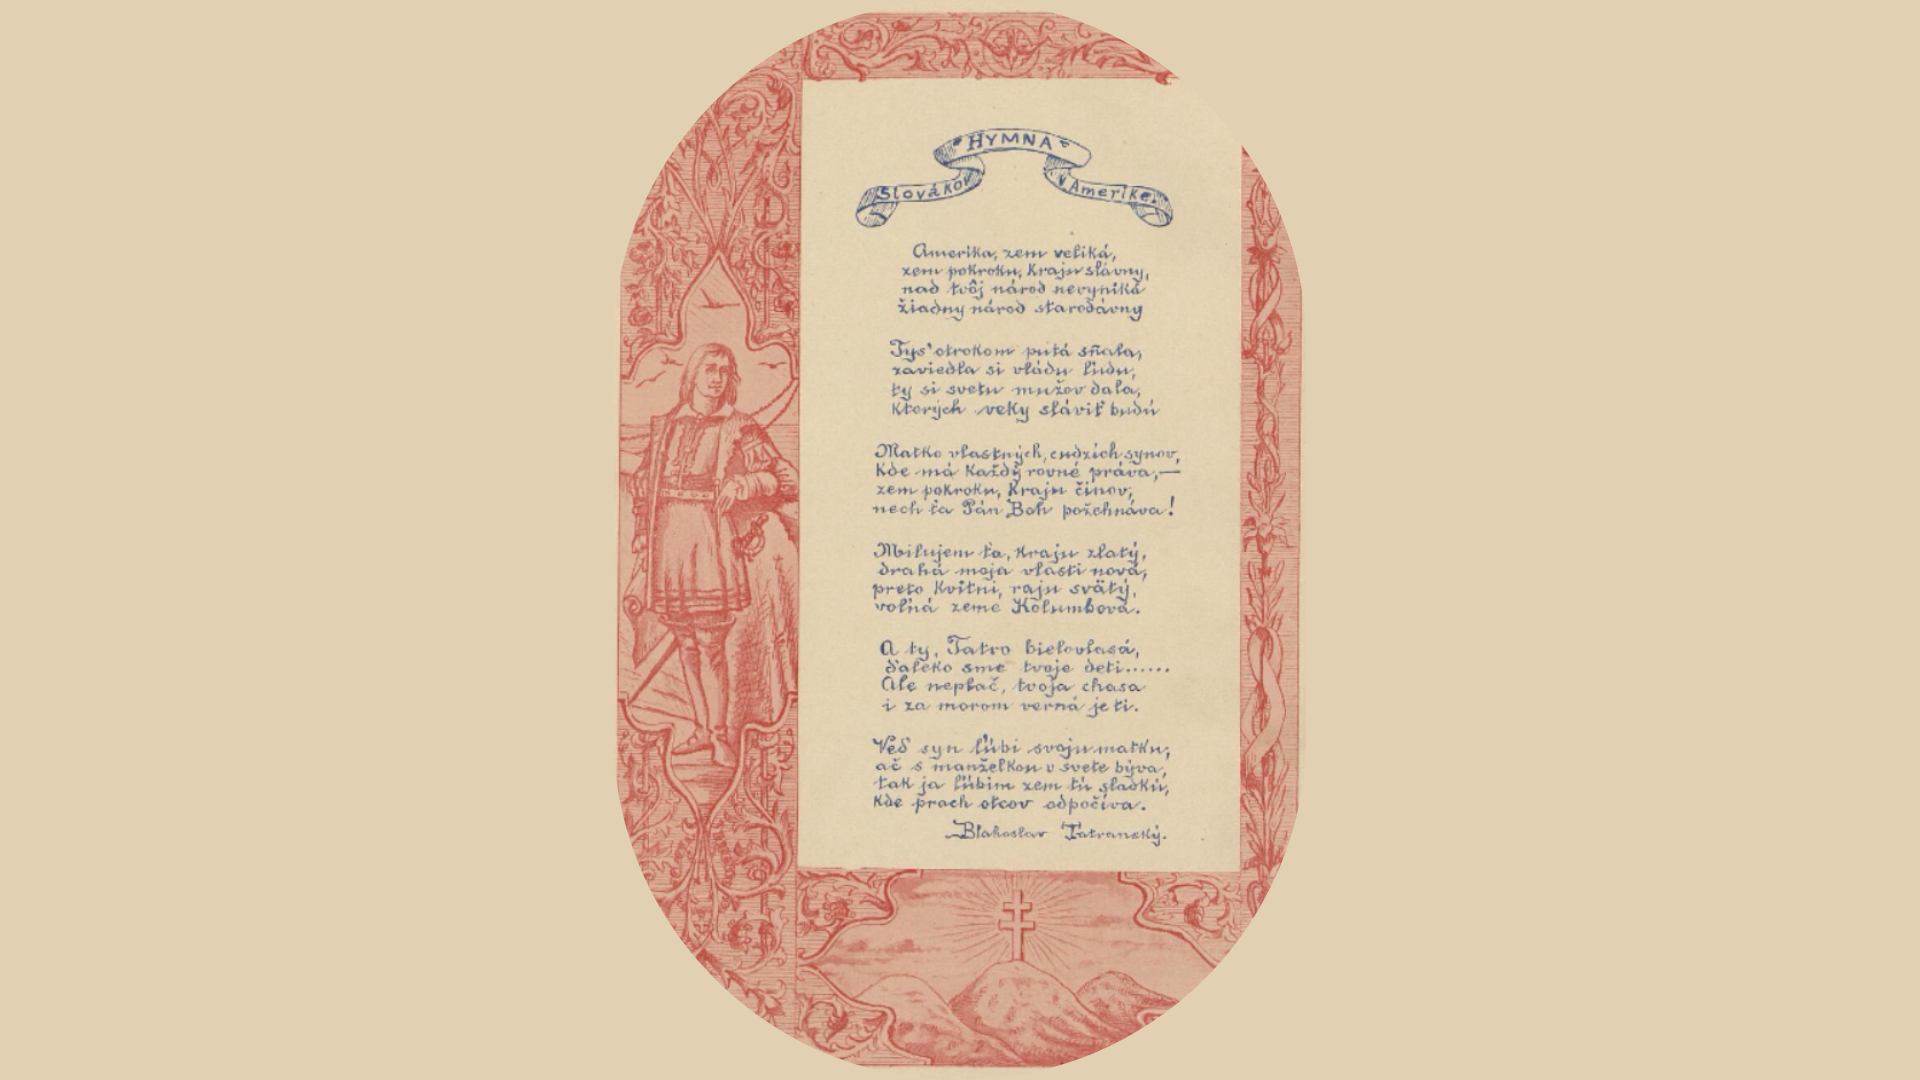 HYMNA
Slovákov v Amerike.
Amerika, zem veliká,
zem pokroku, kraju slávny,
nad tvôj národ nevyniká
žiadny národ starodávny
Tys' otrokom putá sňala,
zaviedla si vládu ľudu,
ty si svetu mužov dala,
ktorých veky sláviť budú
Matko vlastných, cudzích synov,
kde má každý rovné práva,—
zem pokroku, kraju činov,
nech ťa Pán Boh požehnáva!
Milujem ťa, kraju zlatý,
drahá moja vlasti nová,
preto kvitni, raju svätý,
voľná zeme Kolumbová.
A ty, Tatro bielovlasá,
ďaleko sme tvoje deti......
Ale neplač, tvoja chasa
i za morom verná je ti.
Veď syn ľúbi svoju matku,
ač s manželkou v svete býva,
tak ja ľúbim zem tú sladkú,
kde prach otcov odpočíva.
Blahoslav Tatranský.